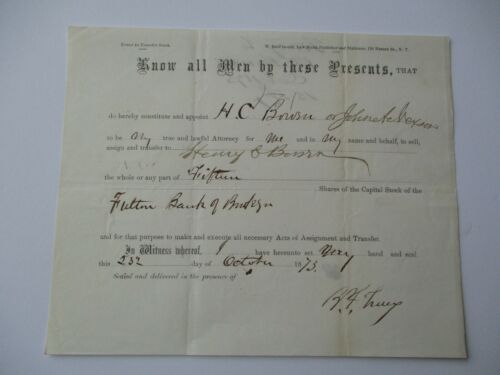 Power to Transfer Stock.
W. Reid Gould, Law Blank Publisher and Stationer, 178 Nassau St., N. Y.
Know all Men by these Presents, THAT
do hereby constitute and appoint H. C. Bowen or John
to be My true and lawful Attorney for Me and in My name and behalf, to sell,
assign and transfer to Henry C Bowen
the whole or any part of Fifteen
Shares of the Capital Stock of the
Fulton Bank of
and for that purpose to make and execute all necessary Acts of Assignment and Transfer.
In Witness whereof, I have hereunto set hand and seal
this 23d day of October 1873.
Sealed and delivered in the presence of